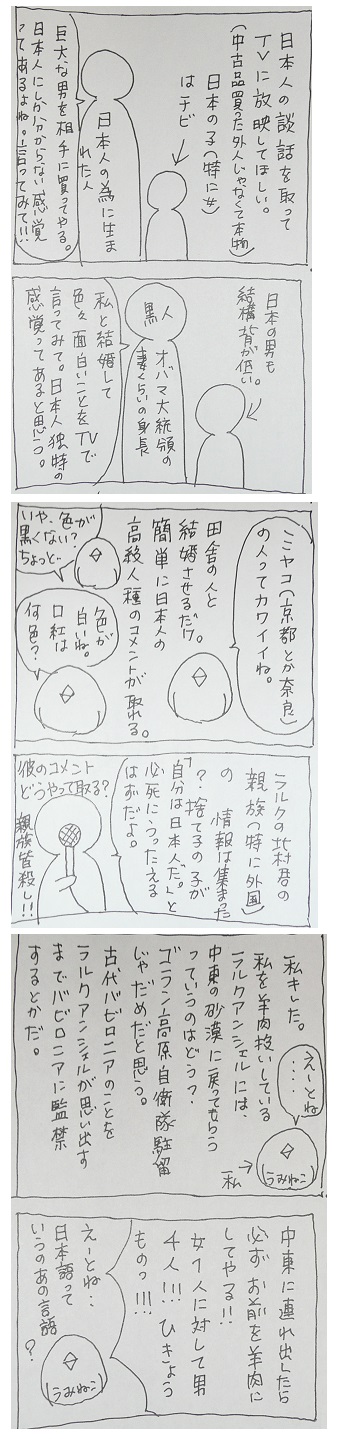 日本人の談話を取って
TVに放映してほしい。
(中古品買った外人じゃなくて本物)
日本の子(特に女)
はチビ
日本人の為に生ま
れた人
巨大な男を相手に買ってやる。
日本人にしか分からない感覚
ってあるよね。言ってみて!!
日本の男も
結構背が低い。
黒人
オバマ大統領の
妻くらいの身長
私と結婚して
色々面白いことをTVで
言ってみて。日本人独特の
感覚ってあると思う。
ミヤコ(京都とか奈良)
の人ってカワイイね。
田舎の人と
結婚させるだけ。
簡単に日本人の
高級人種のコメントが取れる。
いや、色が
黒くない?
ちょっと…
色が
白いね。
口紅は
何色?
ラルクの北村君の
親族(特に外国)
の情報は集まった
?捨て子の子が
「自分は日本人だ。」と
必死にうったえる
はずだよ。
彼のコメント
どうやって取る?
親族皆殺し!!
私キレた。
私を羊肉扱いしている
ラルクアンシェルには、
中東の砂漠に戻ってもらう
っていうのはどう?
ゴラン高原自衛隊駐留
じゃだめだと思う。
古代バビロニアのことを
ラルクアンシェルが思い出す
までバビロニアに監禁
するとかだ。
えーとね
・・・・
うみねこ
私
中東に連れ出したら
必ずお前を羊肉に
してやる!!
女1人に対して男
4人!!!ひきょう
ものっ!!!
えーとね・・
日本語って
いうのあの言語
?
うみねこ